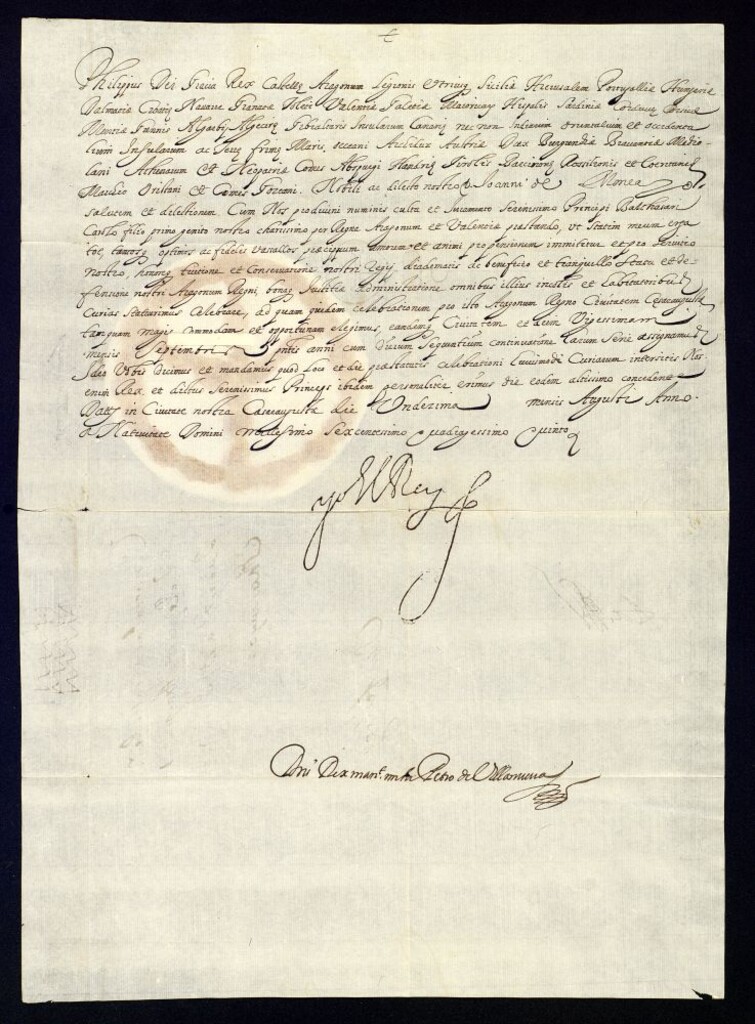 Philippus Dei Gracia Rex Castellę Aragonum Legionis Utriusq Siciliæ Hierusalem Portugalliæ Hungariæ
Dalmatiæ Croatię Navarræ Granatæ Valentiæ Galletiæ Maioricarū Hispalis Sardiniæ Cordubæ Corsicæ
Murtiæ Giennis Algarbij Algecirę Gibraltaris Insularum Canarię nec non Indiarum orientalium et occidenta
lium Insularum ac Terrę firmę Maris oceani Archidux Austriæ Dux Burgundiæ Bravantiæ Medio
lani Athenarum et Neopatriæ Comes Abspurgi Flandrię Tirolis Barcinonę Rossilionis et Ceritaniæ
Marchio Oristani et Comes Goceani. Nobili ac dilecto nostro Joanni de
salutem et dilectionem. Cum Nos pro divini numinis cultu et Iuramento Serenissimo Principi Balthasari
Carolo filio primogenito nostro charissimo per Regna Aragonum et Valentiæ præstando, ut statim meum erga
tanquam optimos ac fideles vasallos præcipuum amorem et animi propensionem et pro servitio
nostro, tuitione et Conservatione nostri Regij diadematis de benefitio et tranquillo statu et de
fensione nostri Aragonum Regni, bonaq Justitiæ administratione omnibus illius incolis et habitatoribus
Curias statuimus celebrare, ad quam quidem celebrationem pro isto Aragonum Regno Civitatem Cesaraugustæ
tanquam magis commodam et opportunam elegimus, eandemq Civitatem et Diem Vigessimam
mensis Septembris pntis anni cum Dierum sequentium continuatione harum serie assignamus
Ideo Vobis Dicimus et mandamus quod loco et die præstatutis celebrationi huiusmodi Curiarum intersitis Nos
enim Rex et dictus serenissimus Princeps ibidem personaliter erimus die eodem altissimo concedente
Datt. in Civitate nostra Cæsaraugustæ die Undezima mensis Augusti Anno
a Nativitate Domini millessimo sexcentessimo quadragessimo quinto
yo el Rey
Dns Rex mant. mihi Petro de Villanueva